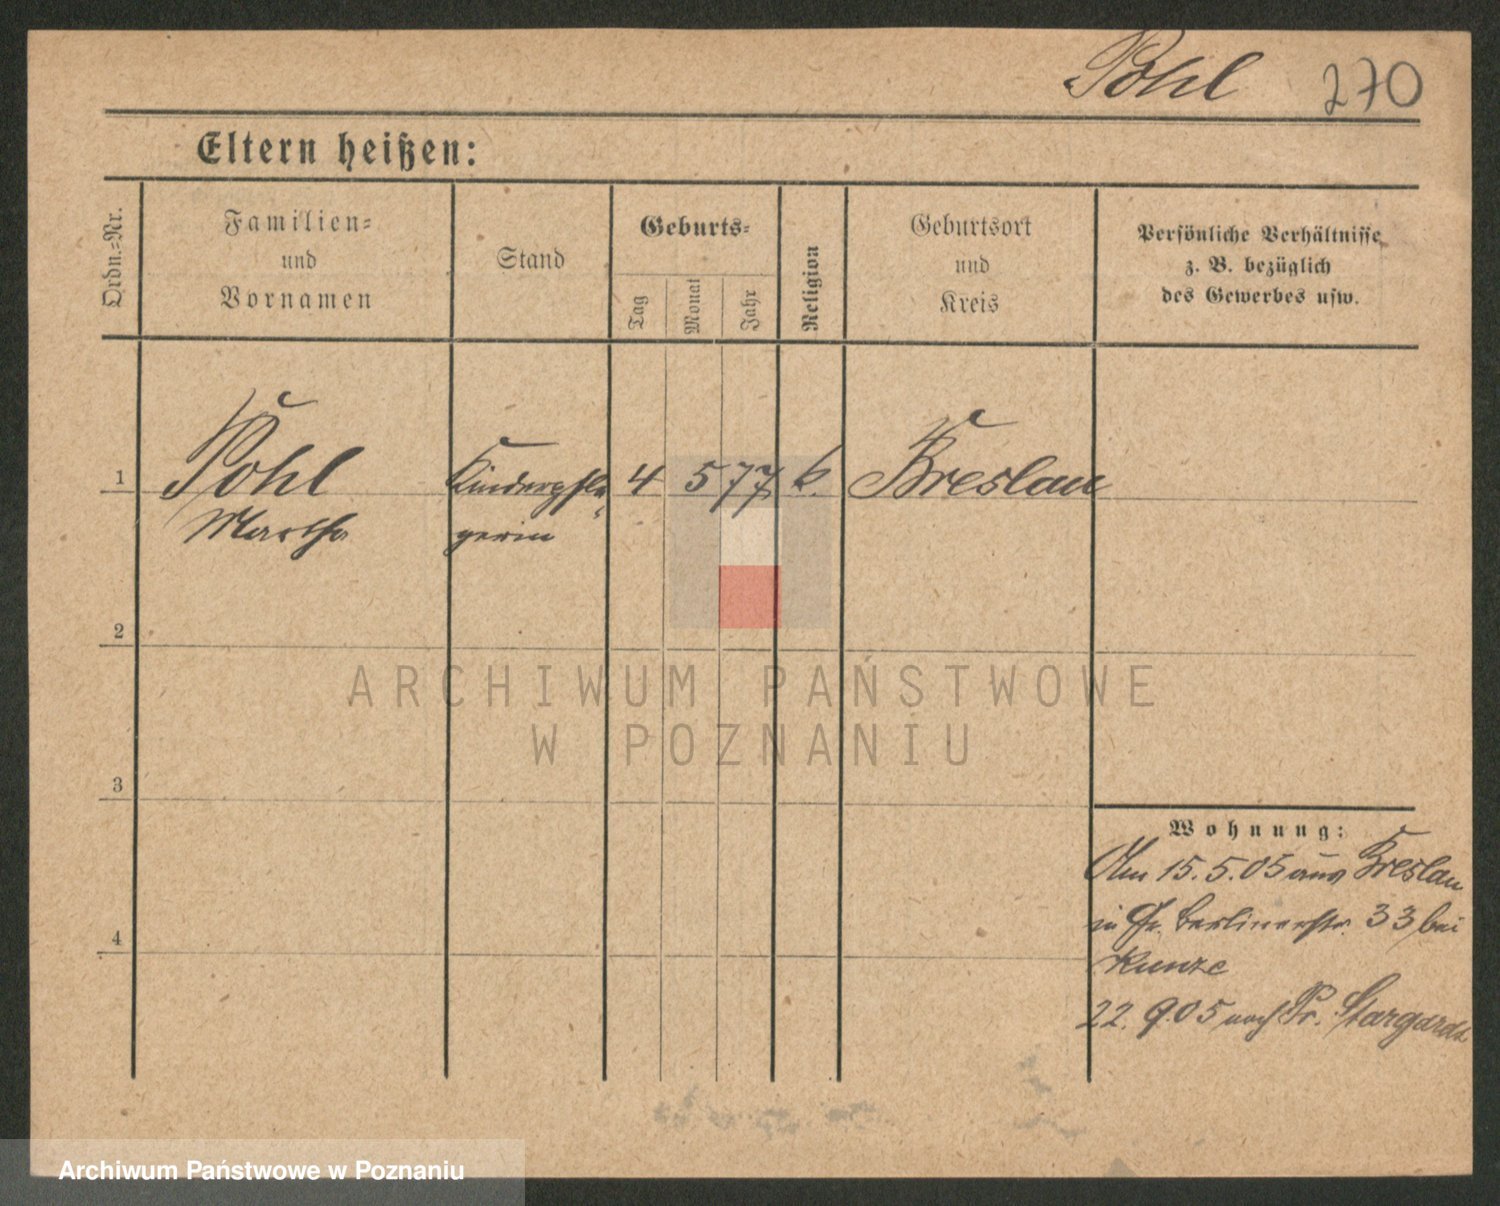 Pohl 270
Eltern heißen:
Ordn.-Nr.
Familien-
und
Vornamen
Stand
Geburts-
Tag
Monat
Jahr
Religion
Geburtsort
und
Kreis
Persönliche Verhältnisse
z. B. bezüglich
des Gewerbes usw.
1 Pohl Kinderpfle 4 5 77 k. Breslau
Martha gerin
2
3
4
Wohnung:
Am 15.5.05 aus Breslau
in Gr. Berlinerstr. 33 bei
Kunze
22.9.05 nach Pr. Stargardt
ARCHIWUM PAŃSTWOWE
W POZNANIU
Archiwum Państwowe w Poznaniu